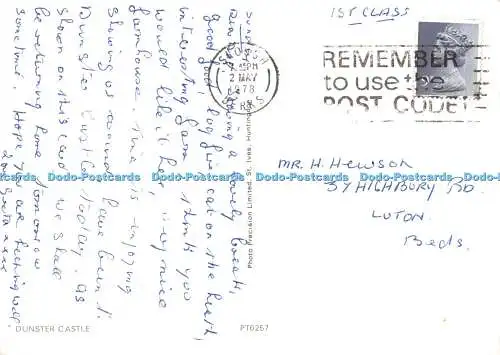 1ST CLASS
2 MAY
1978
REMEMBER
to use the
POST CODE
MR. H. Hewson
37 HIGHBURY RD.
LUTON.
Beds.
having a lovely break,
good food, log fire, cat on the hearth,
interesting farm. I think you
would like it here, very nice
farmhouse. is enjoying
showing us round. have been to
Dunster Castle today. as
shown on this card. we shall
be returning home tomorrow
sometime. Hope you are feeling well.
Photo Precision Limited, St. Ives, Huntingdon
DUNSTER CASTLE
PT6257
Dodo-Postcards Dodo-Postcards Dodo-Postcards Dodo-Postcards